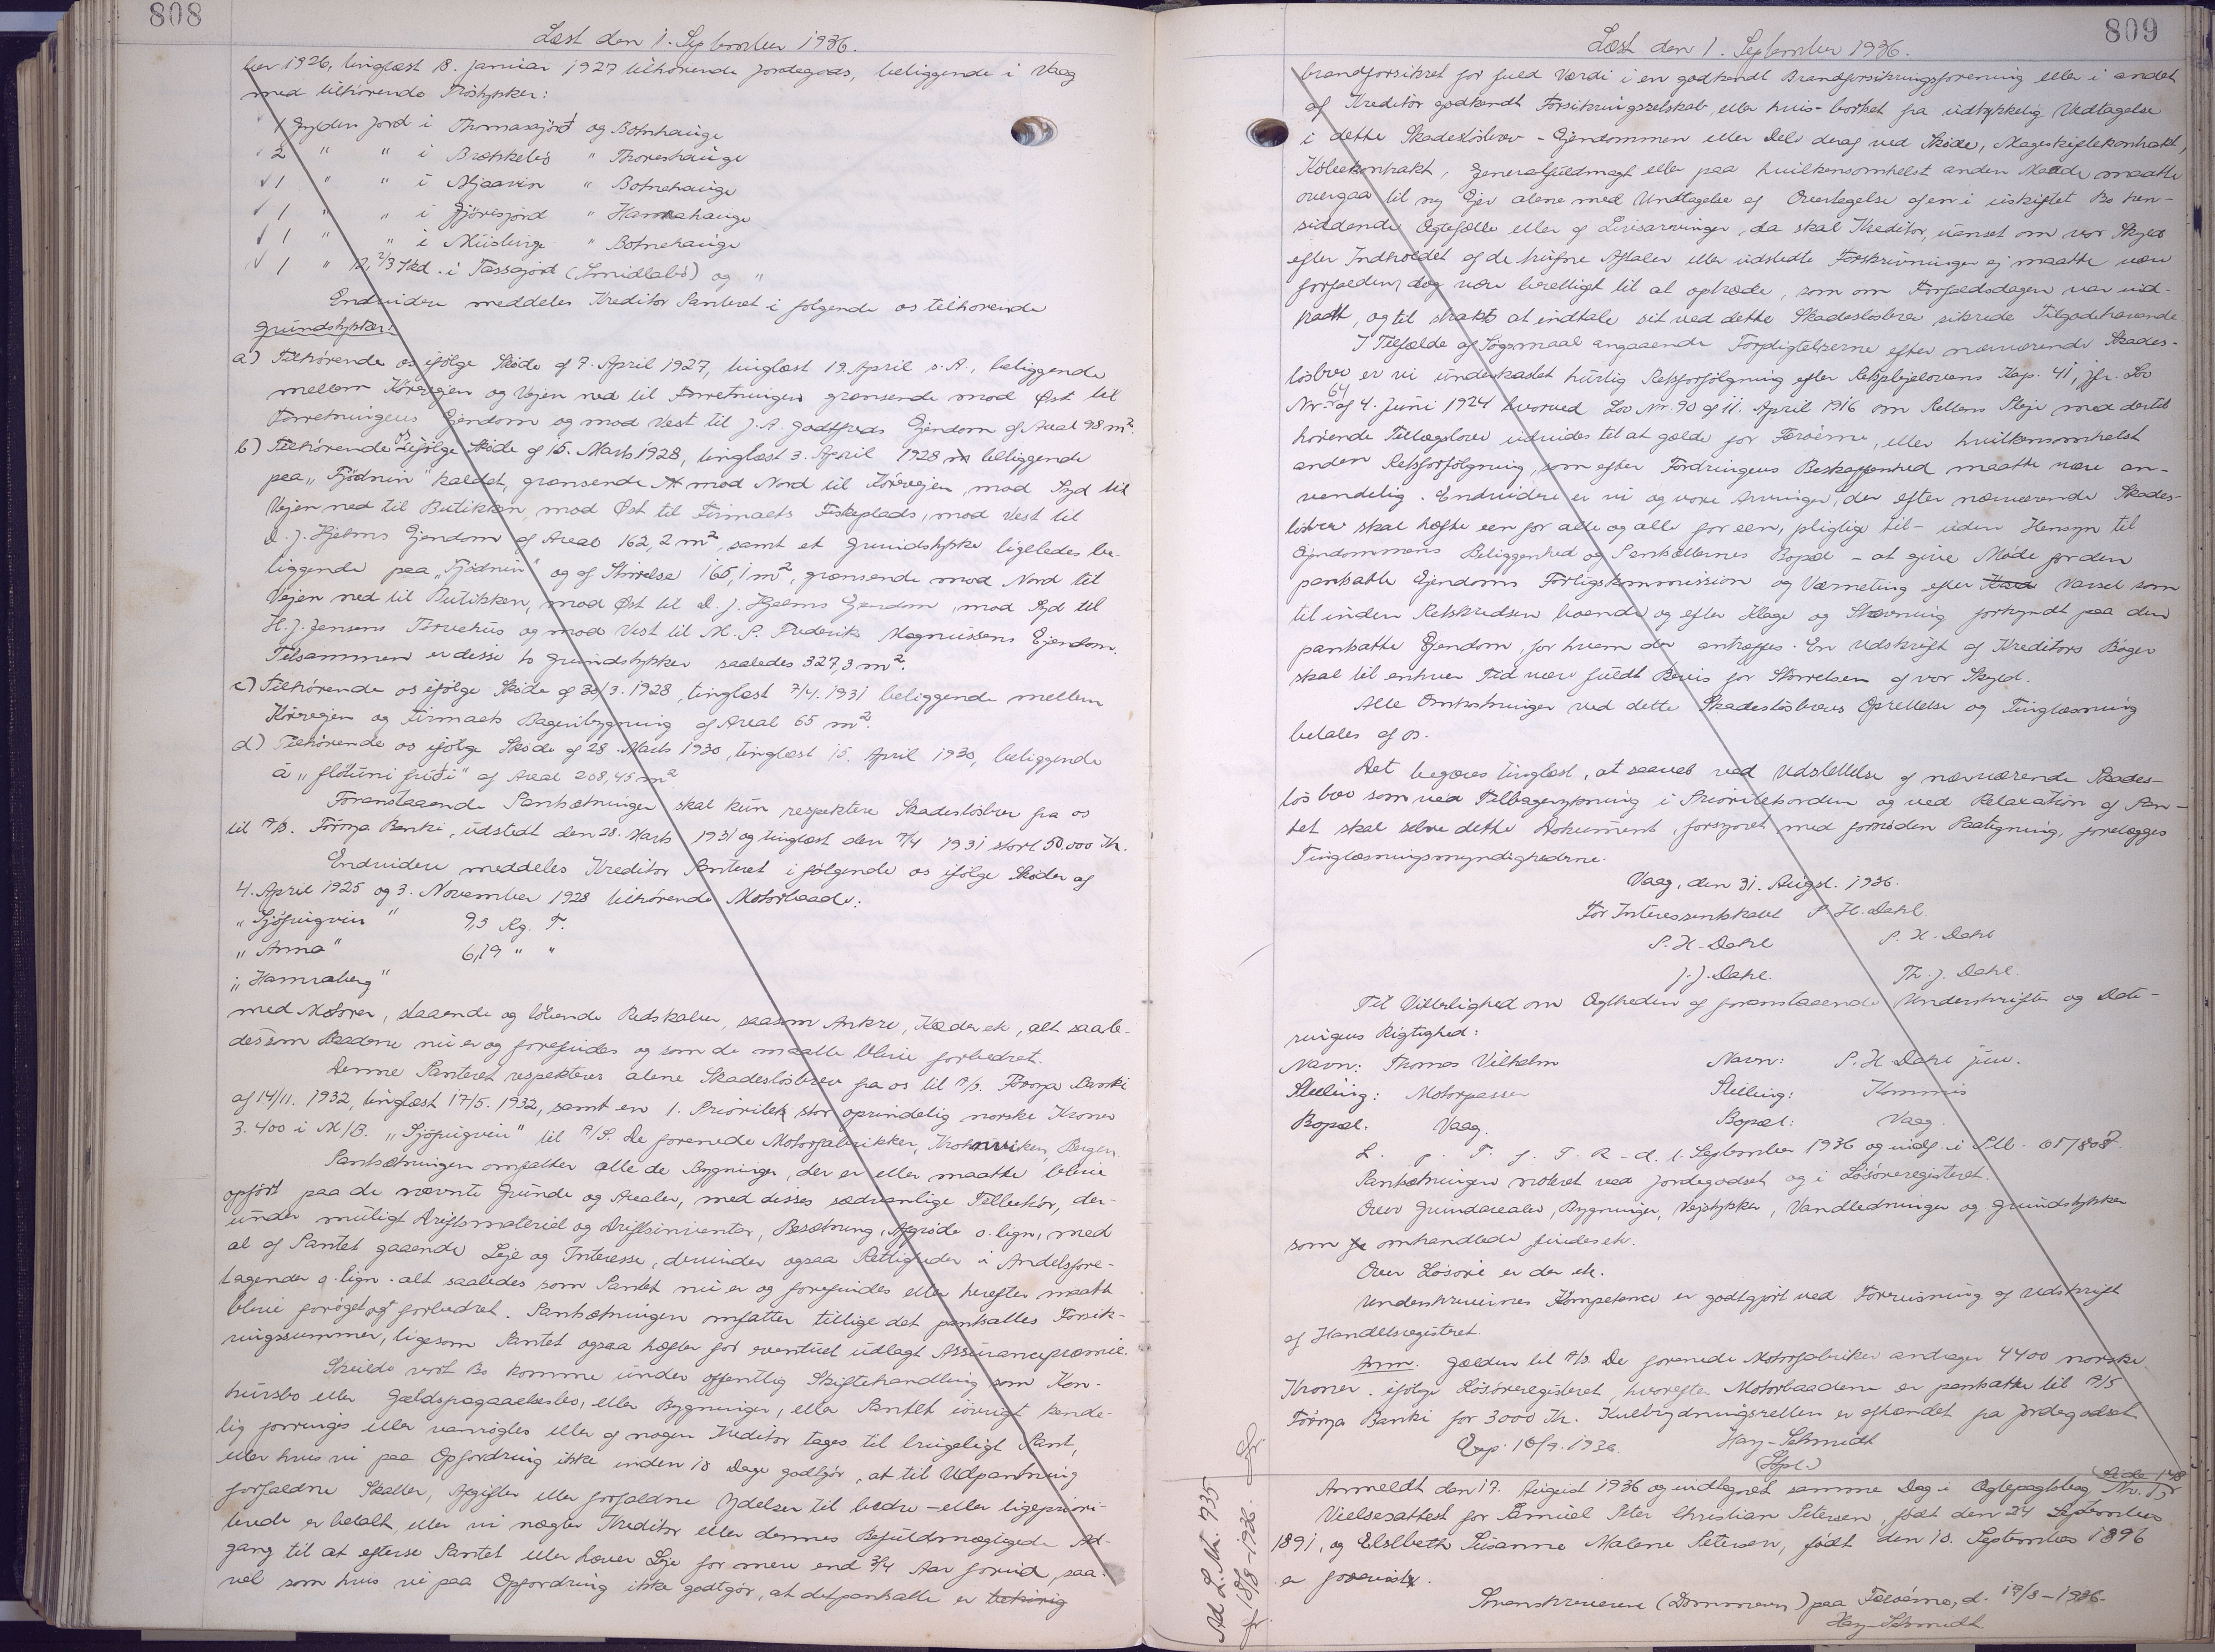 808
Læst den 1. September 1936.
ber 1926, tinglæst 18. Januar 1927 tilhørende Jordegods, beliggende i Vaag
med tilhørende Fröstykker:
1 Gylden Jord i Thomasajörd og Botnhauge
2 " " i Brekkelið " Thoreshauge
1 " " i " Botnehauge
1 " " i " Hamrahauge
1 " " i " Botnehauge
1 " 12 2/3 Skd. i Tassajörd og "
Endvidere meddeles Kreditor Panteret i følgende os tilhørende
Grundstykker:
a) Tilhørende os ifølge Skøde af 7. April 1927, tinglæst 19. April s.A., beliggende
mellem Körevejen og Vejen ned til Forretningen grænsende mod Øst til
Forretningens Ejendom og mod Vest til J.A. Godtfreds Ejendom af Areal 98 m².
b) Tilhørende os ifølge Skøde af 15. Marts 1928, tinglæst 3. April 1928 beliggende
paa "Tjödnin" kaldet, grænsende mod Nord til Köreveien, mod Syd til
Vejen ned til Butikken, mod Øst til Firmaets Fiskeplads, mod Vest til
D.J. Hjelms Ejendom af Areal 162,2 m², samt et Grundstykke ligeledes be-
liggende paa "Tjödnin" og af Størrelse 165,1 m², grænsende mod Nord til
Vejen ned til Butikken, mod Øst til D.J. Hjelms Ejendom, mod Syd til
H.J. Jensens Tørvehus og mod Vest til M.P. Frederik Magnussens Ejendom.
Tilsammen er disse to Grundstykker saaledes 327,3 m².
c) Tilhørende os ifølge Skøde af 30/3. 1928, tinglæst 7/4. 1931 beliggende mellem
Körevejen og Firmaets Bageribygning af Areal 65 m².
d) Tilhørende os ifølge Skøde af 28. Marts 1930, tinglæst 15. April 1930, beliggende
á " " af Areal 208,45 m²
Foranstaaende Pantsætninger skal kun respektere Skadesløsbrev fra os
til A/S. Föroya Banki, udstedt den 28. Marts 1931 og tinglæst den 7/4 1931 stort 50.000 Kr.
Endvidere meddeles Kreditor Panteret i følgende os ifølge Skøder af
4. April 1925 og 3. November 1928 tilhørende Motorbaade:
"Sjófuglurin" 9,3 Rg. T.
"Anna" 6,19 " "
"Hamraberg"
med Motorer, staaende og løbende Redskaber, saasom Ankre, Kæder etc, alt saale-
des som Baadene nu er og forefindes og som de maatte blive forbedret.
Denne Panteret respekterer alene Skadesløsbrev fra os til A/S. Föroya Banki
af 14/11. 1932, tinglæst 17/5. 1932, samt en 1. Prioritet stor oprindelig norske Kroner
3.400 i M/B. til A/S. De forenede Motorfabrikker, Bergen.
Pantsætningen omfatter alle de Bygninger, der er eller maatte blive
opført paa de nævnte Grunde og Arealer, med disses sædvanlige Tilbehör, der-
under muligt Driftsmateriel og Driftsinventar, Besætning, Afgrøde o. lign, med
al af Pantet gaaende Leje og Interesse, derunder ogsaa Rettigheder i Andelsfore-
tagender o. lign. alt saaledes som Pantet nu er og forefindes eller herefter maatte
blive forøget og forbedret. Pantsætningen omfatter tillige det pantsattes Forsik-
ringssummer, ligesom Pantet ogsaa hæfter for eventuel udlagt Assurancepræmie.
Skulde vort Bo komme under offentlig Skiftebehandling som Kon-
kursbo eller Gældsfragaaelsesbo, eller Bygninger, eller Pantet iövrigt kende-
lig forringes eller vanrøgtes eller af nogen Kreditor tages til brugeligt Pant,
eller hvis vi paa Opfordring ikke inden 10 Dage godtgör, at til Udpantning
forfaldne Skatter, Afgifter eller forfaldne Ydelser til bedre- eller ligepriori-
terede er betalt, eller vi nægter Kreditor eller dennes Befuldmægtigede Ad-
gang til at efterse Pantet eller hæver Leje for mere end 3/4 Aar forud, saa-
vel som hvis vi paa Opfordring ikke godtgör, at det pantsatte er
809
Læst den 1. September 1936.
brandforsikret for fuld Værdi i en godkendt Brandforsikringsforening eller i andet
af Kreditor godkendt Forsikringsselskab, eller hvis- bortset fra udtrykkelig Vedtagelse
i dette Skadesløsbrev - Ejendommen eller Dele deraf ved Skøde, Mageskiftekontrakt,
Købekontrakt, Generalfuldmagt eller paa hvilkensomhelst anden Maade maatte
overgaa til ny Ejer alene med Undtagelse af Overtagelse af en i uskiftet Bo hen-
siddende Ægtefælle eller af Livsarvinger, da skal Kreditor, uanset om vor Skyld
efter Indholdet af de trufne Aftaler eller udstedte Forskrivninger ej maatte være
forfalden, dog være berettiget til at optræde, som om Forfaldsdagen var ind-
traadt, og til straks at indtale sit ved dette Skadesløsbrev sikrede Tilgodehavende.
I Tilfælde af Søgsmaal angaaende Forpligtelserne efter nærværende Skades-
løsbrev er vi underkastet hurtig Retsforfølgning efter Retsplejelovens Kap. 41, jfr. Lov
Nr. 64 af 4. Juni 1924 hvorved Lov Nr. 90 af 11. April 1916 om Rettens Pleje med dertil
hørende Tillægslove udvides til at gælde for Færøerne, eller hvilkensomhelst
anden Retsforfølgning, som efter Fordringens Beskaffenhed maatte være an-
vendelig. Endvidere er vi og vore Arvinger, der efter nærværende Skades-
løsbrev skal hæfte een for alle og alle for een, pligtige til - uden Hensyn til
Ejendommens Beliggenhed og Panthavernes Bopæl - at give Møde for den
pantsatte Ejendoms Forligskommission og Værneting efter Varsel som
til inden Retskredsen boende og efter Klage og Stævning forkyndt paa den
pantsatte Ejendom, for hvem der antræffes. En Udskrift af Kreditors Bøger
skal til enhver Tid være fuldt Bevis for Størrelsen af vor Skyld.
Alle Omkostninger ved dette Skadesløsbrevs Oprettelse og Tinglæsning
betales af os.
Det begæres tinglæst, at saavel ved Udslettelse af nærværende Skades-
løsbrev som ved Tilbagerykning i Prioritetsorden og ved Relaxation af Pan-
tet skal selve dette Dokument, forsynet med fornøden Paategning, forelægges
Tinglæsningsmyndighederne.
Vaag, den 31. August. 1936.
For Interessentskabet P.H. Dahl.
P.H. Dahl P.H. Dahl
J.J. Dahl. Th. J. Dahl.
Til Vitterlighed om Ægtheden af foranstaaende Underskrifter og Date-
ringens Rigtighed:
Navn: Thomas Vilhelm Navn: P.H. Dahl jun.
Stilling: Motorpasser Stilling: Kommis
Bopæl: Vaag. Bopæl: Vaag.
L. p. T. f. T. R - d. 1. September 1936 og indf. i
Pantsætningen noteret ved Jordegodset og i Løsøreregisteret.
Over Grundarealer, Bygninger, Vejstykker, Vandledninger og Grundstykker
som omhandlede findes ek.
Over Løsøre er der ek.
Underskrivernes Kompetence er godtgjort ved Forevisning af Udskrift
af Handelsregisteret.
Anm. Gælden til A/S. De forenede Motorfabriker andrager 4400 norske
Kroner. ifølge Løsøreregisteret, hvorefter Motorbaadene er pantsatte til A/S
Föroya Banki for 3000 Kr. Kulbrydningsretten er afhændet fra Jordegodset
Exp. 10/9. 1936. Hans Schmidt
Anmeldt den 17. August 1936 og indtegnet samme Dag i Ægtepagtsbog Side 148
Vielsesattest for Samuel Peter Christian Petersen, født den 24 September
1891, og Elsbeth Susanne Malene Petersen, født den 10. September 1896
er forevist.
Sorenskriveren (Dommeren) paa Færøerne, d. 17/8-1936.
Schmidt
Ad L. Nr. 1735